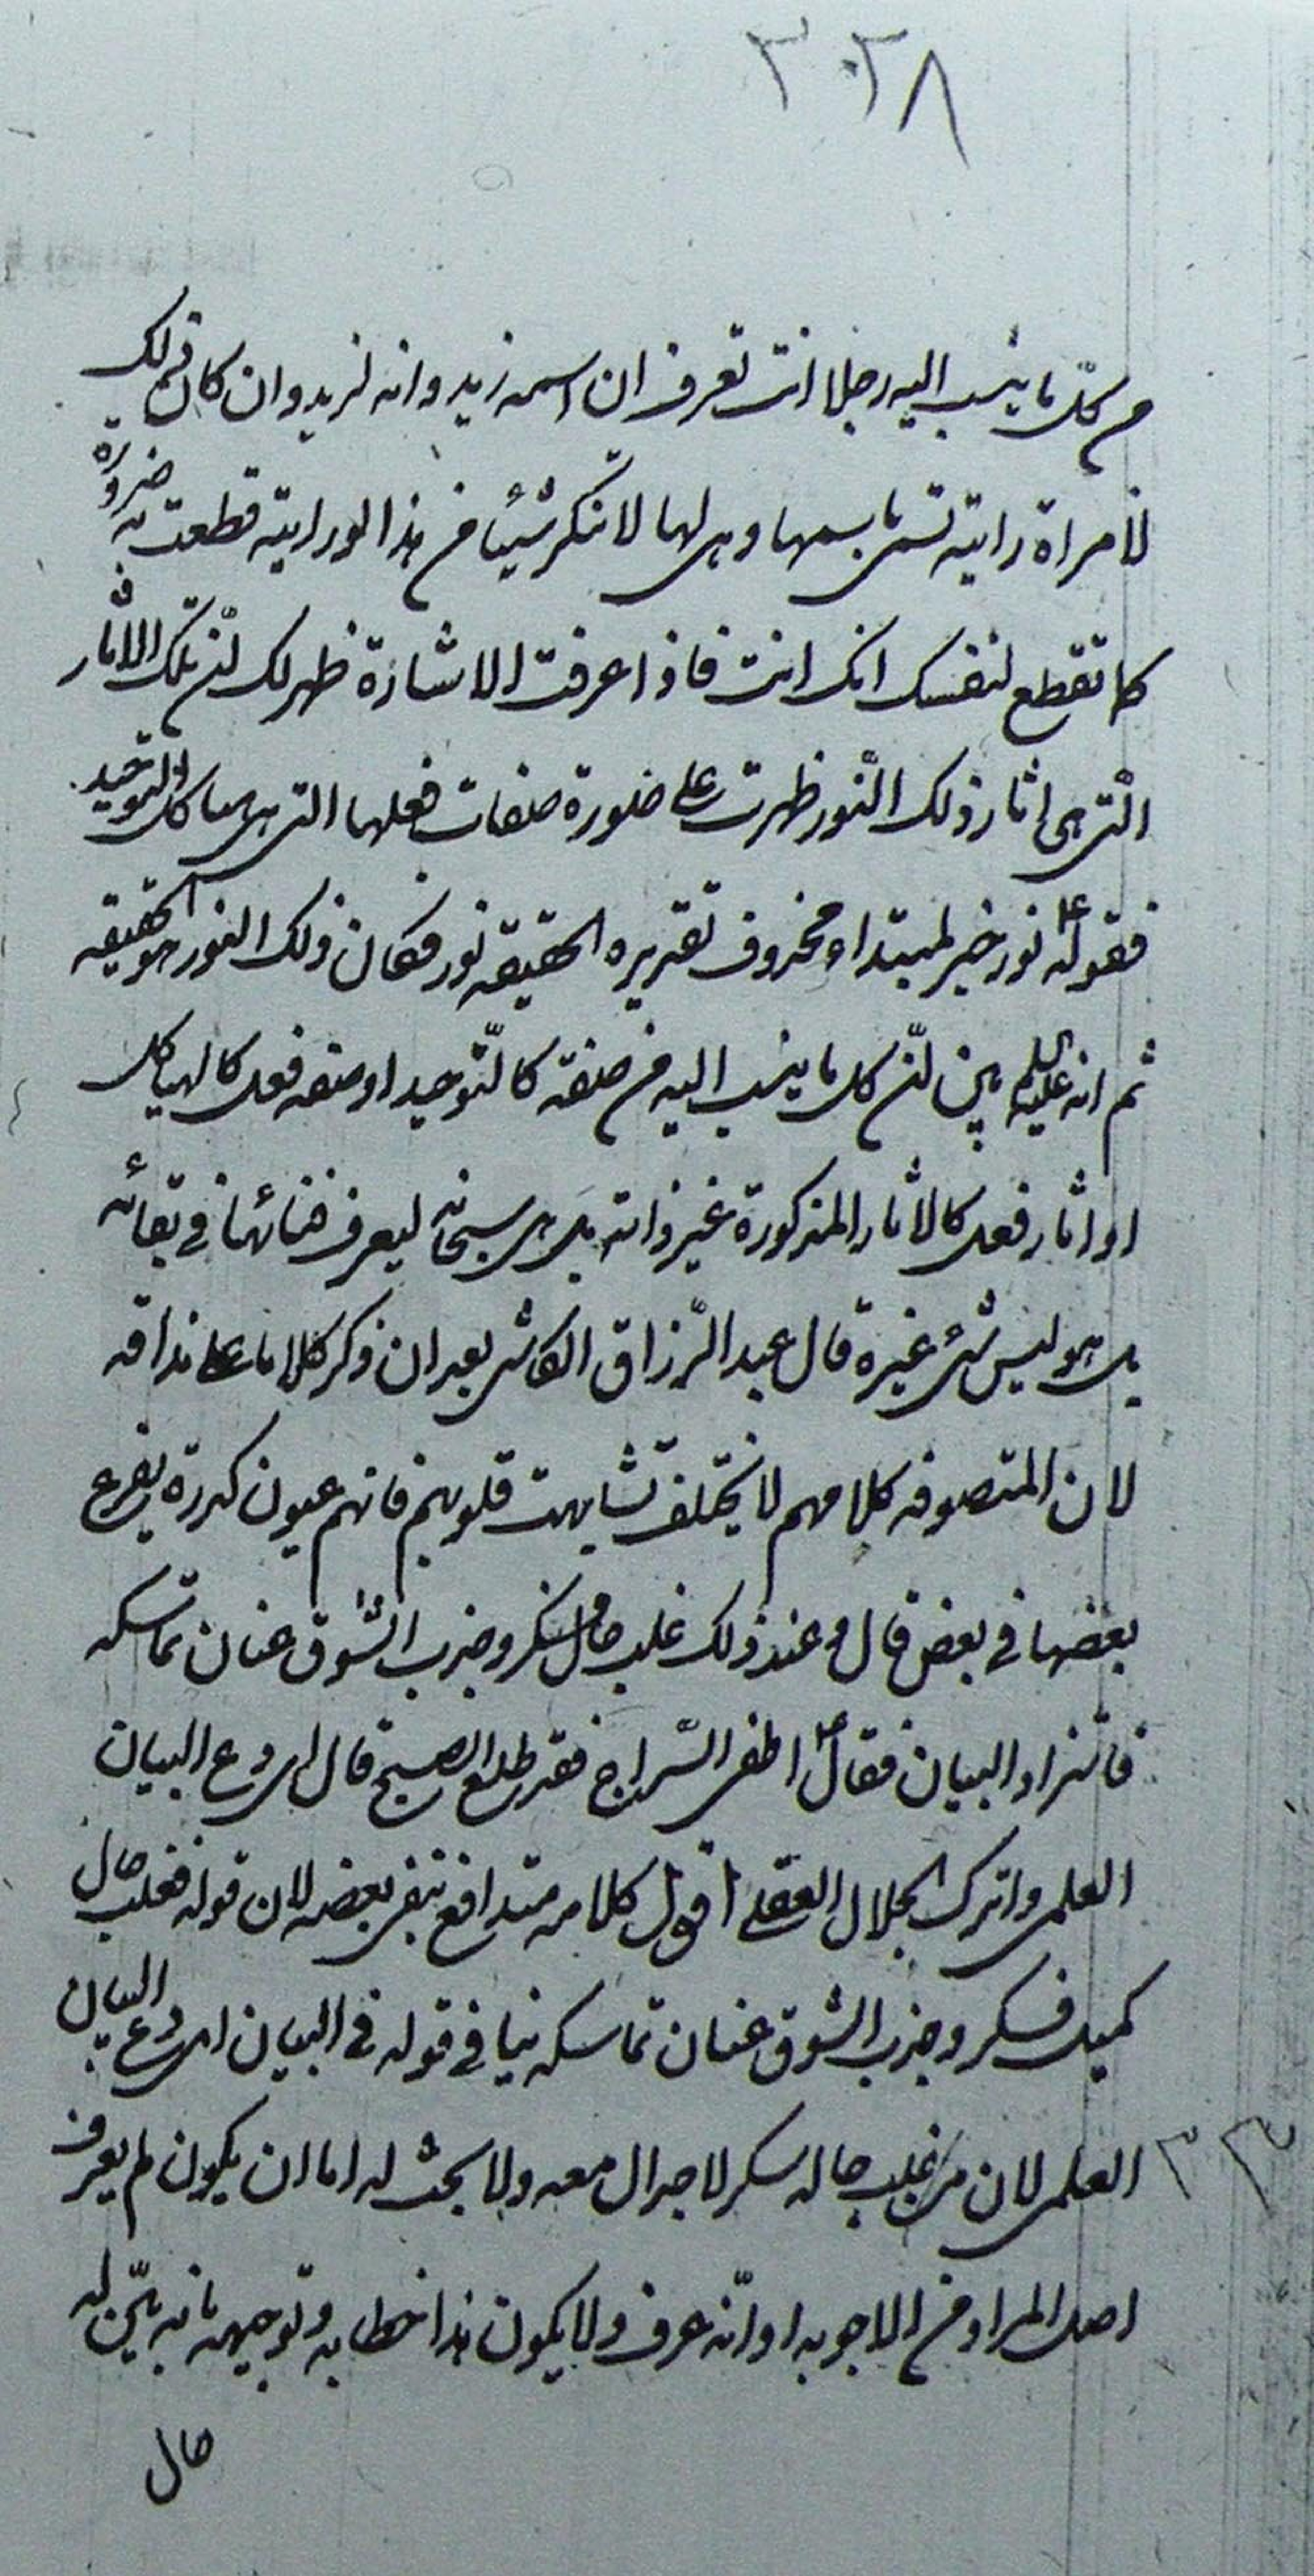 ٣٠٢٨
من كلّ ما ينسب اليه رجلا انت تعرف ان اسمه زيد وانه لزيد وان كان ذلك
لامراة رايته تسمى باسمها وهى لها لا تنكر شيئا من هذا لو رايته قطعت به ضرورة
كما تقطع لنفسك انك انت فاذا عرفت الاشارة ظهر لك انّ تلك الاثار
الّتى هى اثار ذلك النّور ظهرت على صورة صفات فعلها التى هى هياكل التّوحيد
فقوله ع نور خبر لمبتداء محذوف تقديره الحقيقة نور فكان ذلك النور هو الحقيقه
ثم انه عليه السلم بيّن انّ كل ما ينسب اليه من صفة كالتّوحيد او صفه فعل كالهياكل
او اثار فعل كالاثار المذكورة غير ذاته بل هى سبحانه ليعرف فنائها فى بقائه
بل هو ليس شئ غيره قال عبد الرّزاق الكاشى بعد ان ذكر كلاما على مذاقه
لان المتصوفه كلامهم لا يختلف تشابهت قلوبهم فانهم عيون كدرة يفرغ
بعضها فى بعض قال وعند ذلك غلب حال سكر وجذب الشّوق عنان تماسكه
فاستزاد البيان فقال ع اطفى السّراج فقد طلع الصبح قال اى دع البيان
العلمى واترك الجدال العقلى اقول كلامه متدافع ينفى بعضه لان قوله فغلب حال
كميل فسكر وجذب الشوق عنان تماسكه ينافى قوله فى البيان اى دع البيان
العلمى لان من غلب حاله سكر لا جدال معه ولا بحث له اما ان يكون لم يعرف
٣٣
اصل المراد من الاجوبه او انّه عرف ولا يكون هذا خطابه وتوجيهه بانه بيّن له
حال